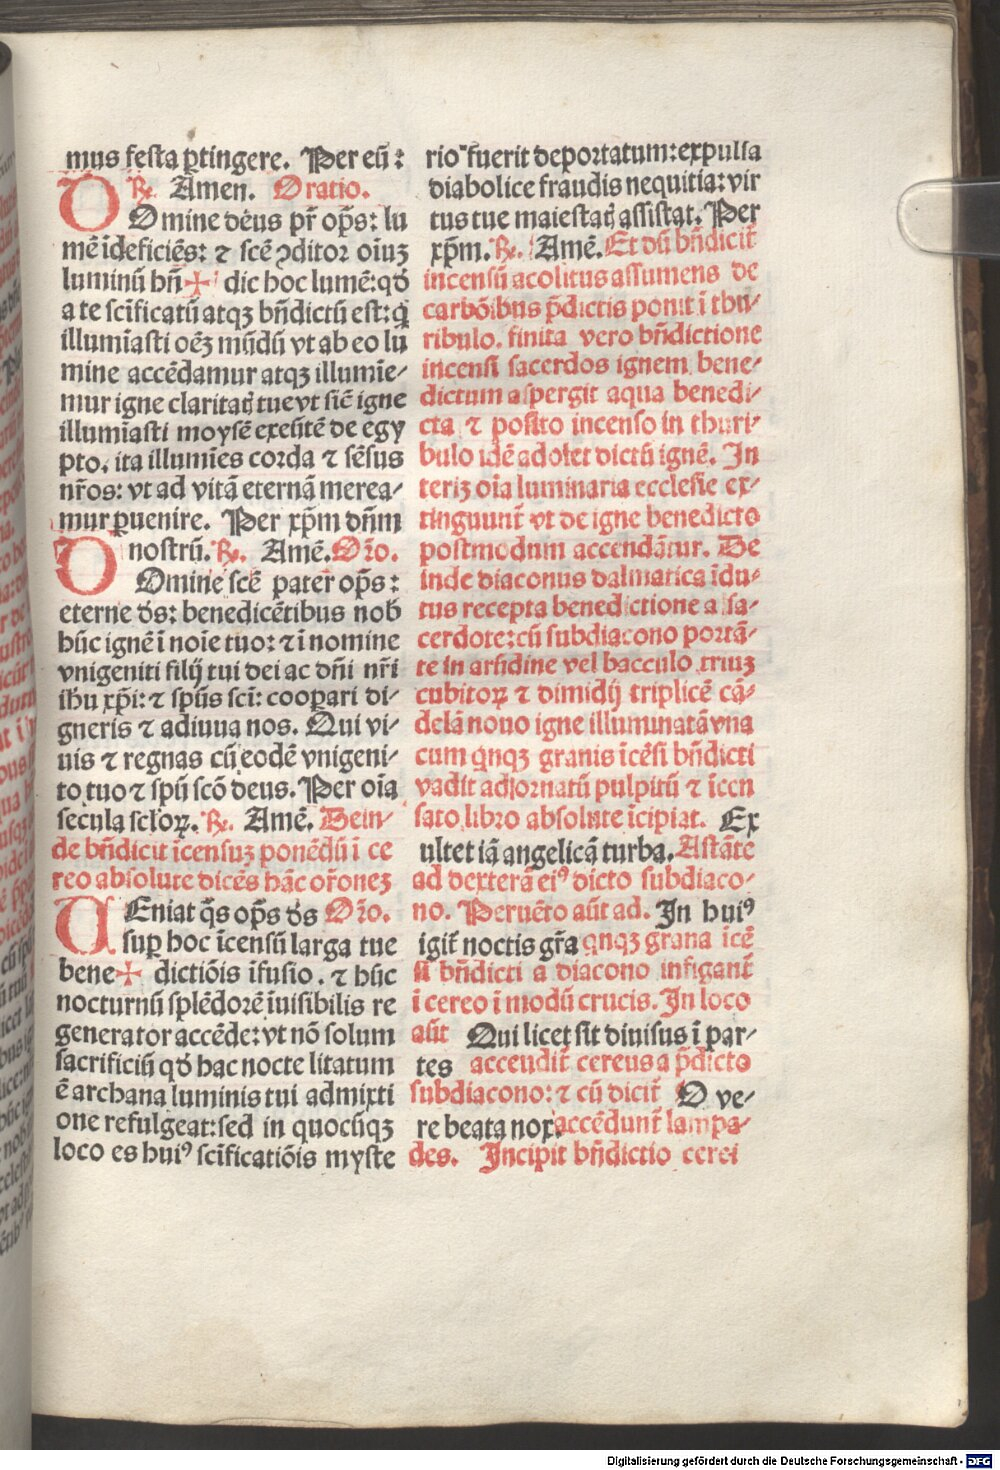 mus festa ꝑtingere. Per eū:
℞. Amen. Oratio.
DOmine deus pr̄ op̄s: lu
mē īdeficiēs: ⁊ scē ꝯditor oīuꝫ
luminū bn̄✠ dic hoc lumē: qḋ
a te scīficatū atqꝫ bn̄dictū est: q̇
illumīasti oēꝫ mūdū vt ab eo lu
mine accēdamur atqꝫ illumīe⸗
mur igne claritatꝭ tue vt sic̄ igne
illumīasti moysē exeūtē de egy
pto. ita illumīes corda ⁊ sēsus
nr̄os: vt ad vitā eternā merea⸗
mur ꝑuenire. Per xp̄m dn̄m
nostrū. ℞. Amē. Or̄o.
DOmine scē pater op̄s:
eterne ds̄: benedicētibus nob̄
hūc ignē ī noīe tuo: ⁊ ī nomine
vnigeniti filij tui dei ac dn̄i nr̄i
ihū xp̄i: ⁊ spūs sc̄i: cooꝑari di⸗
gneris ⁊ adiuua nos. Qui vi⸗
uis ⁊ regnas cū eodē vnigeni⸗
to tuo ⁊ spū scō deus. Per oīa
secula sclꝰoꝝ. ℞. Amē. Dein⸗
de bn̄dicit īcensuꝫ ponēdū ī ce
reo absolute dicēs hāc or̄oneꝫ
UEniat q̄s op̄s ds̄ Or̄o.
suꝑ hoc īcensū larga tue
bene✠ dictiōis īfusio. ⁊ hūc
nocturnū splēdorē īuisibilis re
generator accēde: vt nō solum
sacrificiū qḋ hac nocte litatum
ē archana luminis tui admixti
one refulgeat: sed in quocūqꝫ
loco es huiꝰ scīficatiōis myste
rioꝰ fuerit deportatum: expulsa
diabolice fraudis nequitia: vir
tus tue maiestatꝭ assistat. Per
xp̄m. ℞. Amē. Et dū bn̄dicit̄
incensū acolitus assumens de
carbōibus p̄dictis ponit ī thu⸗
ribulo. finita vero bn̄dictione
incensi sacerdos ignem bene⸗
dictum aspergit aqua benedi⸗
cta ⁊ posito incenso in thuri⸗
bulo idē adolet dictū ignē. In
teriꝫ oīa luminaria ecclesie ex⸗
tinguunt̄ vt de igne benedicto
postmodum accendātur. De
inde diaconus dalmatica īdu⸗
tus recepta benedictione a sa⸗
cerdote: cū subdiacono portā⸗
te in arūdine vel bacculo triuꝫ
cubitoꝝ ⁊ dimidij triplicē cā⸗
delā nouo igne illuminatā vna
cum qnqꝫ granis īcēsi bn̄dicti
vadit ad ornatū pulpitū ⁊ īcen
sato libro absolute īcipiat. Ex
ultet iā angelicā turba. Astāte
ad dexterā eiꝰ dicto subdiaco⸗
no. Peruēto aūt ad. In huiꝰ
igit̄ noctis gr̄a qnqꝫ grana īcē
si bn̄dicti a diacono infigant̄
ī cereo ī modū crucis. In loco
aūt Qui licet sit diuisus ī par⸗
tes accendit̄ cereus a p̄dicto
subdiacono: ⁊ cū dicit̄ O ve⸗
re beata nox. accēdunt̄ lampa⸗
des. Incipit bn̄dictio cerei
Digitalisierung gefördert durch die Deutsche Forschungsgemeinschaft - DFG